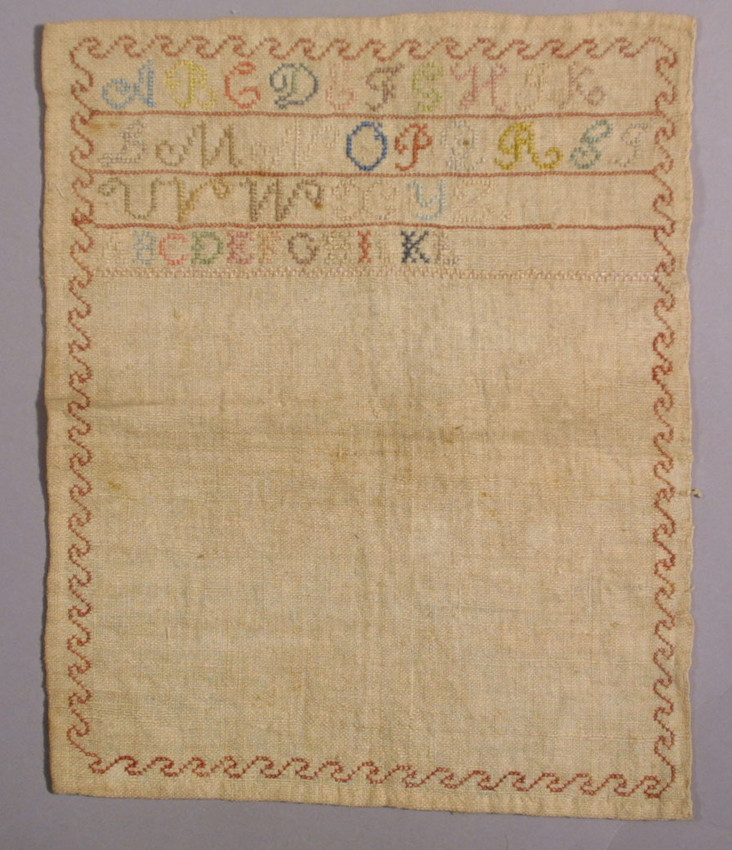 A B C D E F G H I K
L M N O P Q R S T
U V W X Y Z
A B C D E F G H I K L